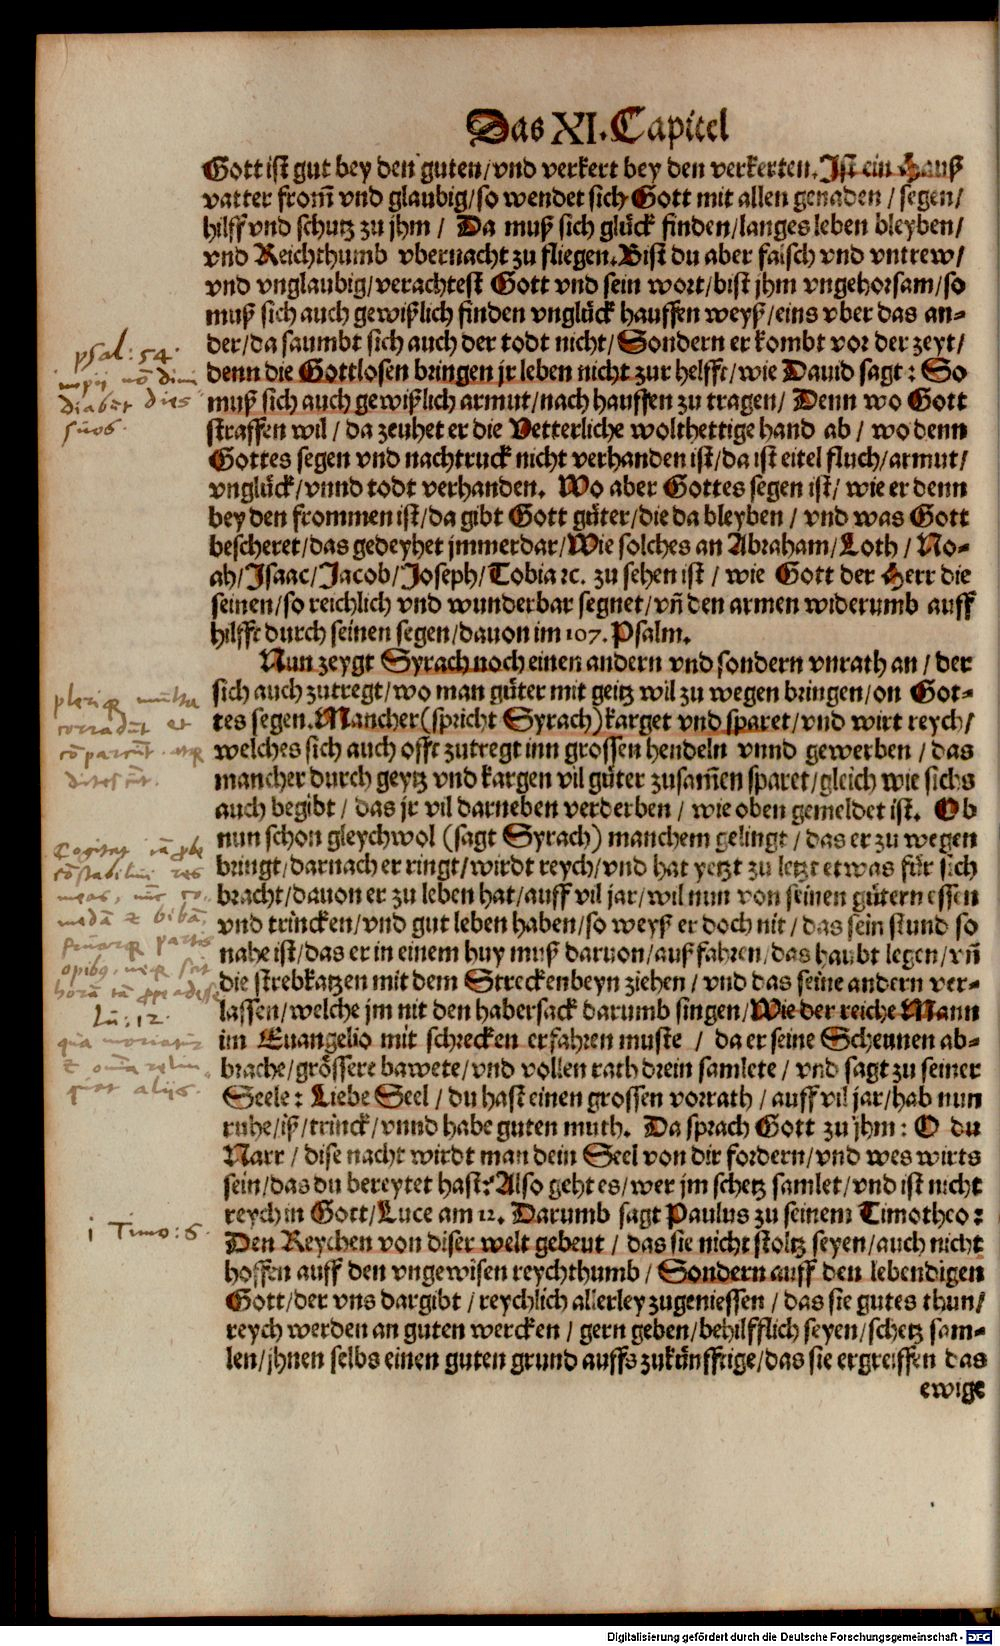 Das XI. Capitel
Gott ist gut bey den guten/vnd verkert bey den verkerten. Ist ein Hauß
vatter from̃ vnd glaubig/so wendet sich Gott mit allen genaden / segen/
hilff vnd schutz zu jhm / Da muß sich glück finden/langes leben bleyben/
vnd Reichthumb vbernacht zu fliegen. Bist du aber falsch vnd vntrew/
vnd vnglaubig/verachtest Gott vnd sein wort/bist jhm vngehorsam/so
muß sich auch gewißlich finden vnglück hauffen weyß/eins vber das an-
der/da saumbt sich auch der todt nicht/Sondern er kombt vor der zeyt/
denn die Gottlosen bringen jr leben nicht zur helfft/wie Dauid sagt: So
muß sich auch gewißlich armut/nach hauffen zu tragen/ Denn wo Gott
straffen wil / da zeuhet er die Vetterliche wolthettige hand ab / wo denn
Gottes segen vnd nachtruck nicht verhanden ist/da ist eitel fluch/armut/
vnglück/vnnd todt verhanden. Wo aber Gottes segen ist/ wie er denn
bey den frommen ist/da gibt Gott güter/die da bleyben / vnd was Gott
bescheret/das gedeyhet jmmerdar/Wie solches an Abraham/Loth / No-
ah/Isaac/Jacob/Joseph/Tobia ꝛc. zu sehen ist / wie Gott der Herr die
seinen/so reichlich vnd wunderbar segnet/vñ den armen widerumb auff
hilfft durch seinen segen/dauon im 107. Psalm.
Nun zeygt Syrach noch einen andern vnd sondern vnrath an / der
sich auch zutregt/wo man güter mit geitz wil zu wegen bringen/on Got-
tes segen. Mancher (spricht Syrach) karget vnd sparet/vnd wirt reych/
welches sich auch offt zutregt inn grossen hendeln vnnd gewerben / das
mancher durch geytz vnd kargen vil güter zusam̃en sparet/gleich wie sichs
auch begibt / das jr vil darneben verderben / wie oben gemeldet ist. Ob
nun schon gleychwol (sagt Syrach) manchem gelingt / das er zu wegen
bringt/darnach er ringt/wirdt reych/vnd hat yetzt zu letzt etwas für sich
bracht/dauon er zu leben hat/auff vil jar/wil nun von seinen gütern essen
vnd trincken/vnd gut leben haben/so weyß er doch nit / das sein stund so
nahe ist/das er in einem huy muß daruon/auß fahren/das haubt legen/vñ
die strebkatzen mit dem Streckenbeyn ziehen / vnd das seine andern ver-
lassen/welche jm nit den habersack darumb singen/Wie der reiche Mann
im Euangelio mit schrecken erfahren muste / da er seine Scheunen ab-
brache/grössere bawete/vnd vollen rath drein samlete / vnd sagt zu seiner
Seele: Liebe Seel / du hast einen grossen vorrath / auff vil jar/hab nun
ruhe/iß/trinck/vnnd habe guten muth. Da sprach Gott zu jhm: O du
Narr / dise nacht wirdt man dein Seel von dir fordern/vnd wes wirts
sein/das du bereytet hast? Also geht es/wer jm schetz samlet/vnd ist nicht
reych in Gott/Luce am 12. Darumb sagt Paulus zu seinem Timotheo:
Den Reychen von diser welt gebeut / das sie nicht stoltz seyen/auch nicht
hoffen auff den vngewisen reychthumb / Sondern auff den lebendigen
Gott/der vns dargibt / reychlich allerley zugeniessen / das sie gutes thun/
reych werden an guten wercken / gern geben/behilfflich seyen/schetz sam-
len/jhnen selbs einen guten grund auffs zukünfftige/das sie ergreiffen das
ewige
psal: 54.
impij nō dimi
diabūt dies
suos.
pleriq multa
corradūt et
cōparcūt atq
ditescūt.
Cogitat
cōstabilui res
meas, nūc co-
medā & bibā,
partis
opibq, neq scit
horā adesse
Lu: 12.
aliis.
i Timo: 6.
Digitalisierung gefördert durch die Deutsche Forschungsgemeinschaft - DFG